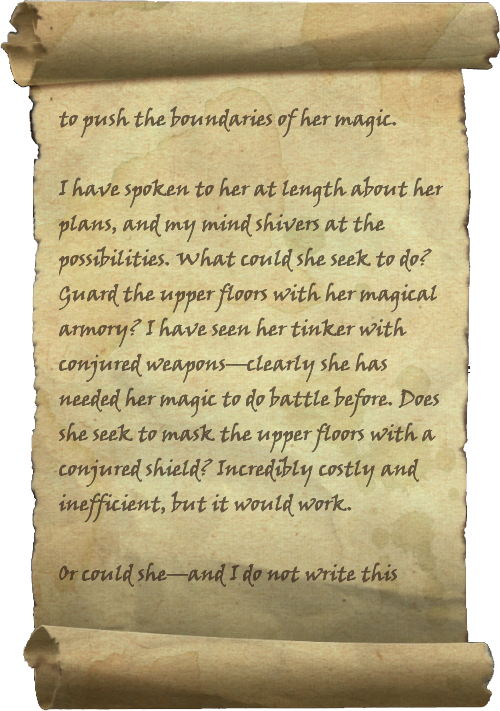 to push the boundaries of her magic.
I have spoken to her at length about her
plans, and my mind shivers at the
possibilities. What could she seek to do?
Guard the upper floors with her magical
armory? I have seen her tinker with
conjured weapons—clearly she has
needed her magic to do battle before. Does
she seek to mask the upper floors with a
conjured shield? Incredibly costly and
inefficient, but it would work.
Or could she—and I do not write this